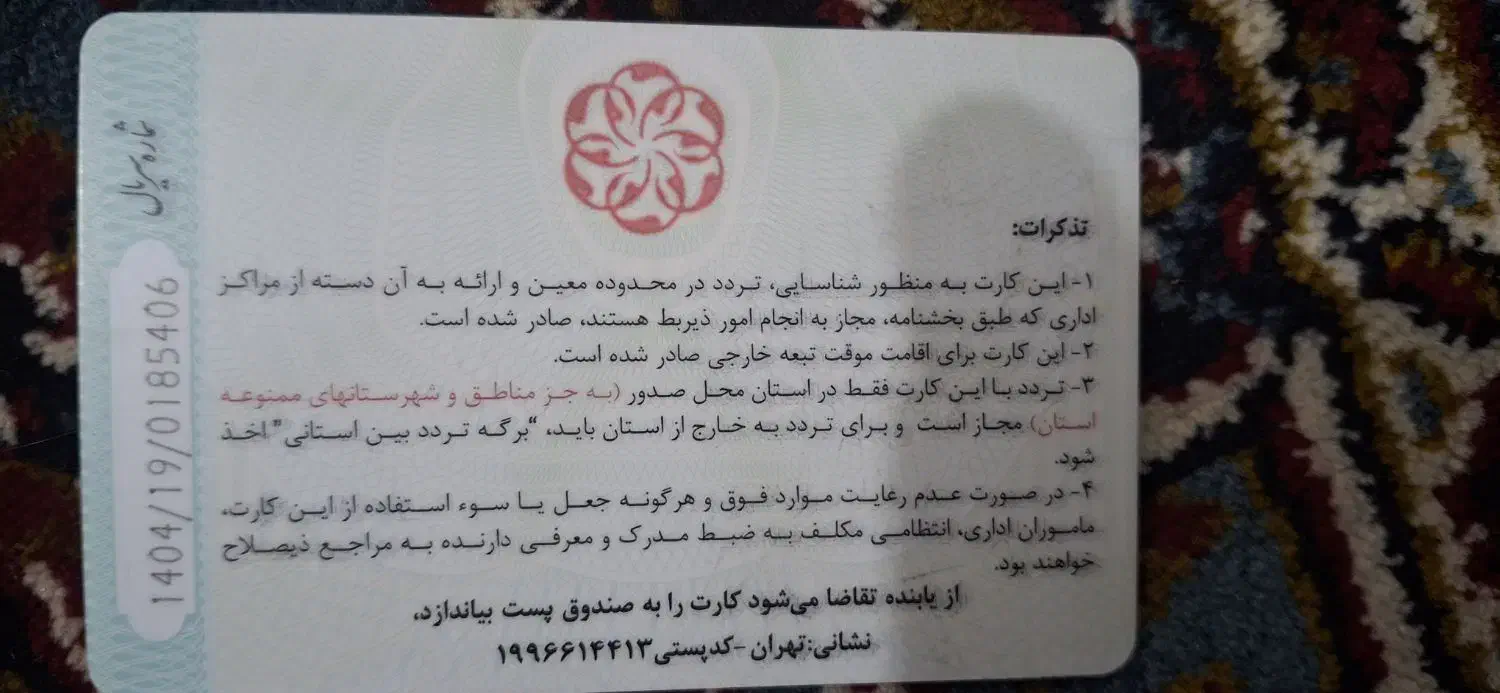 شماره سریال
1404/19/0185406
تذکرات:
۱- این کارت به منظور شناسایی، تردد در محدوده معین و ارائه به آن دسته از مراکز
اداری که طبق بخشنامه، مجاز به انجام امور ذیربط هستند، صادر شده است.
۲- این کارت برای اقامت موقت تبعه خارجی صادر شده است.
۳- تردد با این کارت فقط در استان محل صدور (به جز مناطق و شهرستانهای ممنوعه
استان) مجاز است و برای تردد به خارج از استان باید، "برگه تردد بین استانی" اخذ
شود.
۴- در صورت عدم رعایت موارد فوق و هرگونه جعل یا سوء استفاده از این کارت،
ماموران اداری، انتظامی مکلف به ضبط مدرک و معرفی دارنده به مراجع ذیصلاح
خواهند بود.
از یابنده تقاضا می‌شود کارت را به صندوق پست بیاندازد،
نشانی:تهران -کدپستی۱۹۹۶۶۱۴۴۱۳